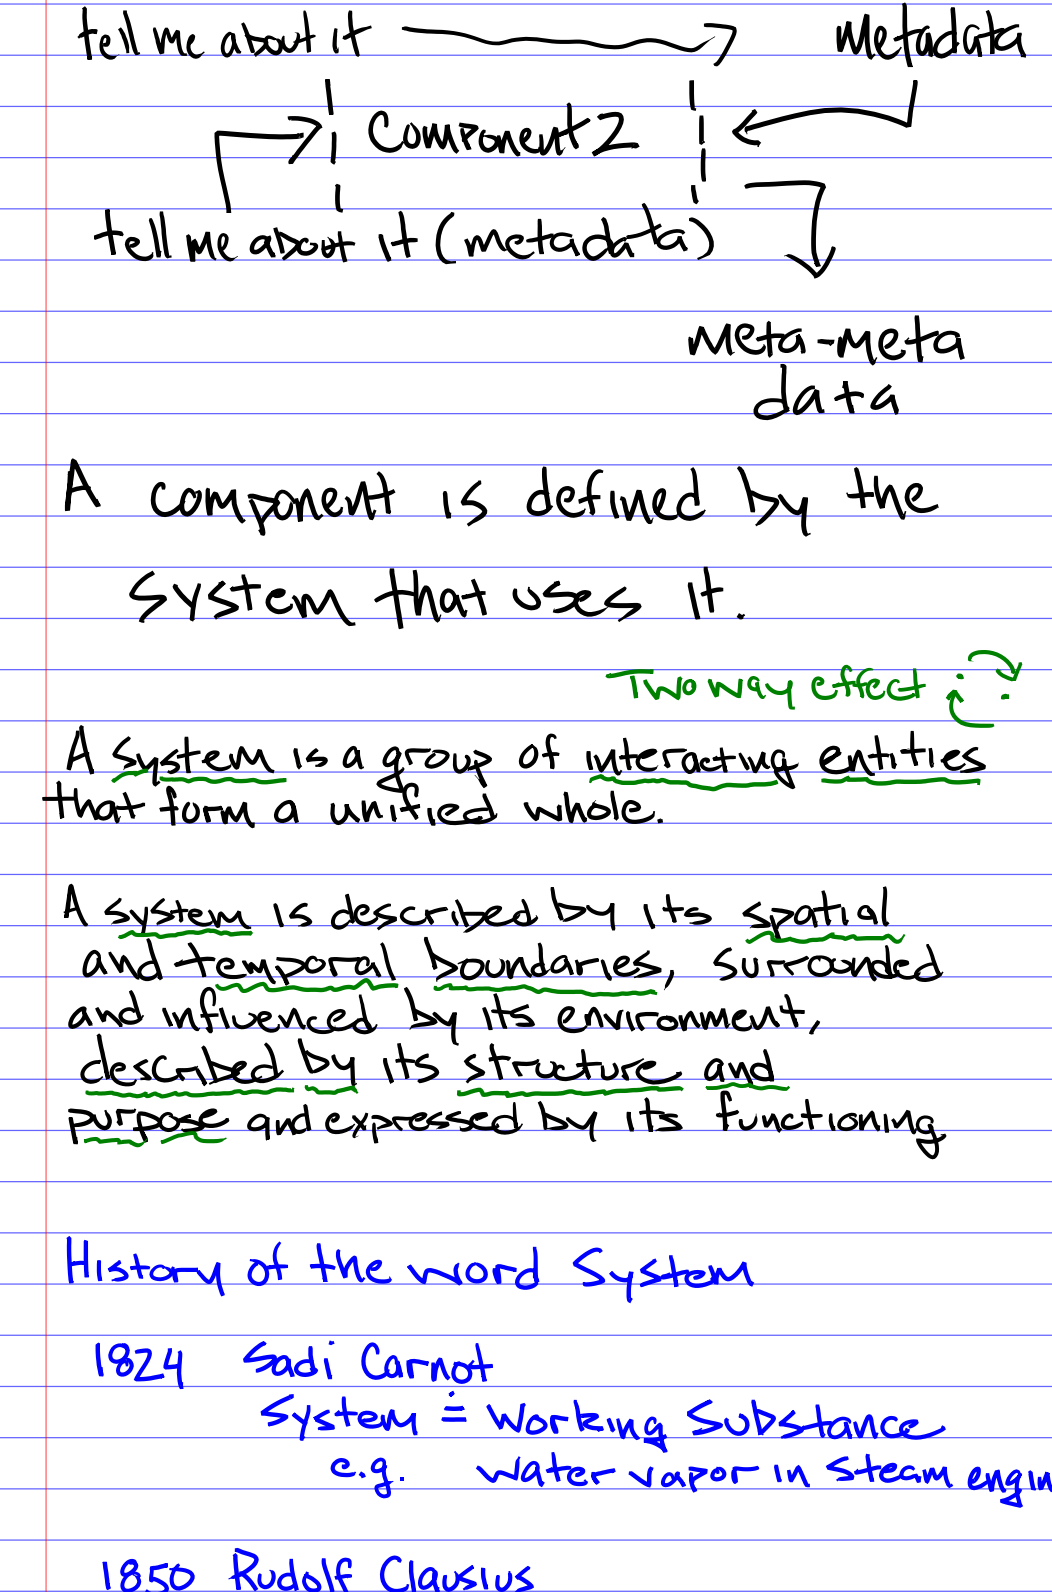 tell me about it metadata
Component 2
tell me about it (metadata)
meta-meta
data
A component is defined by the
system that uses it.
Two way effect
A system is a group of interacting entities
that form a unified whole.
A system is described by its spatial
and temporal boundaries, surrounded
and influenced by its environment,
described by its structure and
purpose and expressed by its functioning
History of the word System
1824 Sadi Carnot
System ≐ Working Substance
e.g. water vapor in steam engin
1850 Rudolf Clausius